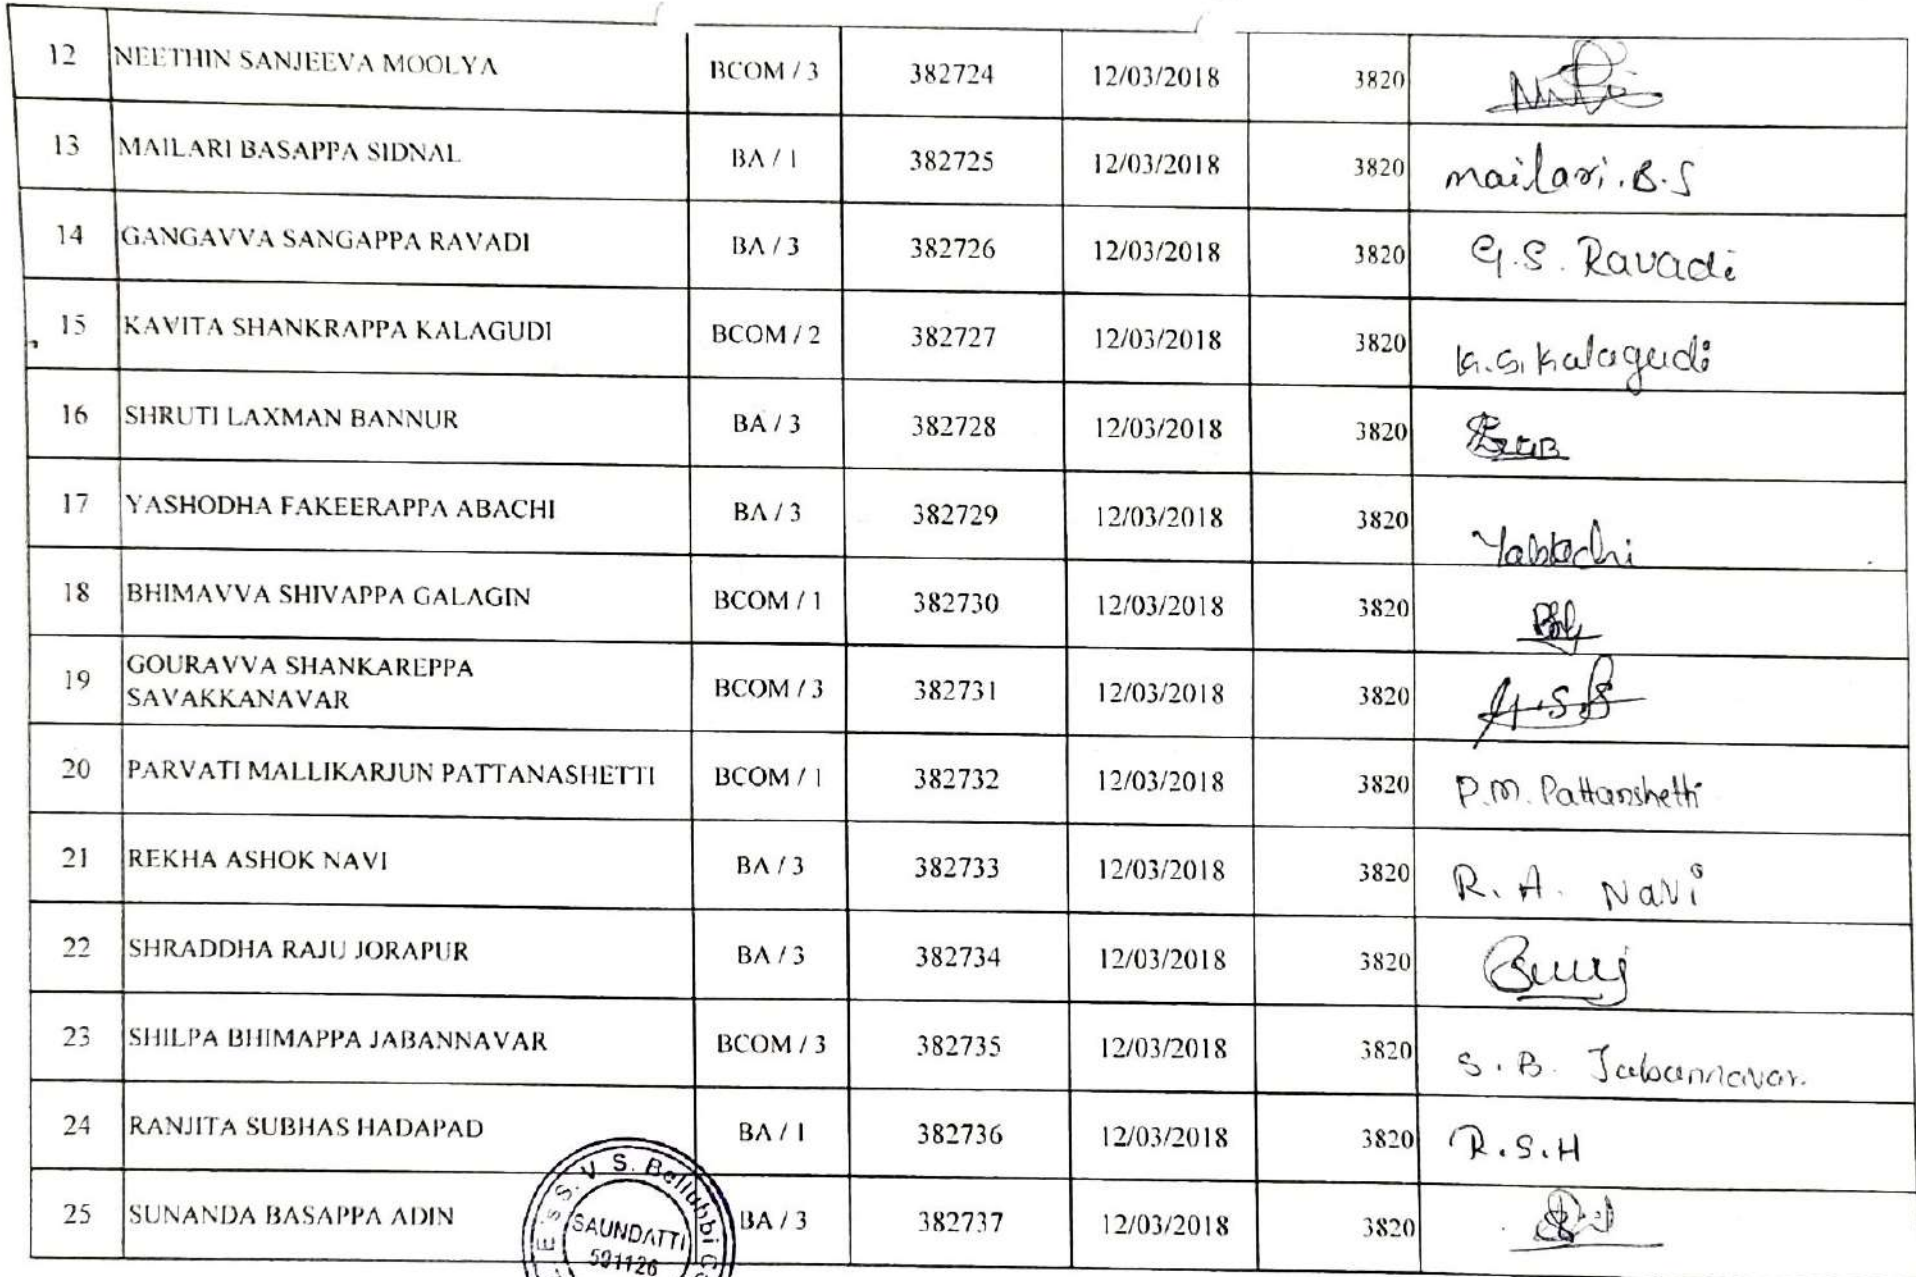 12 NEETHIN SANJEEVA MOOLYA BCOM / 3 382724 12/03/2018 3820
13 MAILARI BASAPPA SIDNAL BA / 1 382725 12/03/2018 3820 mailari.B.S
14 GANGAVVA SANGAPPA RAVADI BA / 3 382726 12/03/2018 3820 G.S. Ravadi
15 KAVITA SHANKRAPPA KALAGUDI BCOM / 2 382727 12/03/2018 3820 K.S. Kalagudi
16 SHRUTI LAXMAN BANNUR BA / 3 382728 12/03/2018 3820
17 YASHODHA FAKEERAPPA ABACHI BA / 3 382729 12/03/2018 3820
18 BHIMAVVA SHIVAPPA GALAGIN BCOM / 1 382730 12/03/2018 3820
19 GOURAVVA SHANKAREPPA
SAVAKKANAVAR BCOM / 3 382731 12/03/2018 3820
20 PARVATI MALLIKARJUN PATTANASHETTI BCOM / 1 382732 12/03/2018 3820 P.M. Pattanshetti
21 REKHA ASHOK NAVI BA / 3 382733 12/03/2018 3820 R. A. NaVi
22 SHRADDHA RAJU JORAPUR BA / 3 382734 12/03/2018 3820
23 SHILPA BHIMAPPA JABANNAVAR BCOM / 3 382735 12/03/2018 3820 S. B. Jabannavar.
24 RANJITA SUBHAS HADAPAD BA / 1 382736 12/03/2018 3820 R.S.H
25 SUNANDA BASAPPA ADIN BA / 3 382737 12/03/2018 3820
E's S. V S. Bellubbi
SAUNDATTI
591126